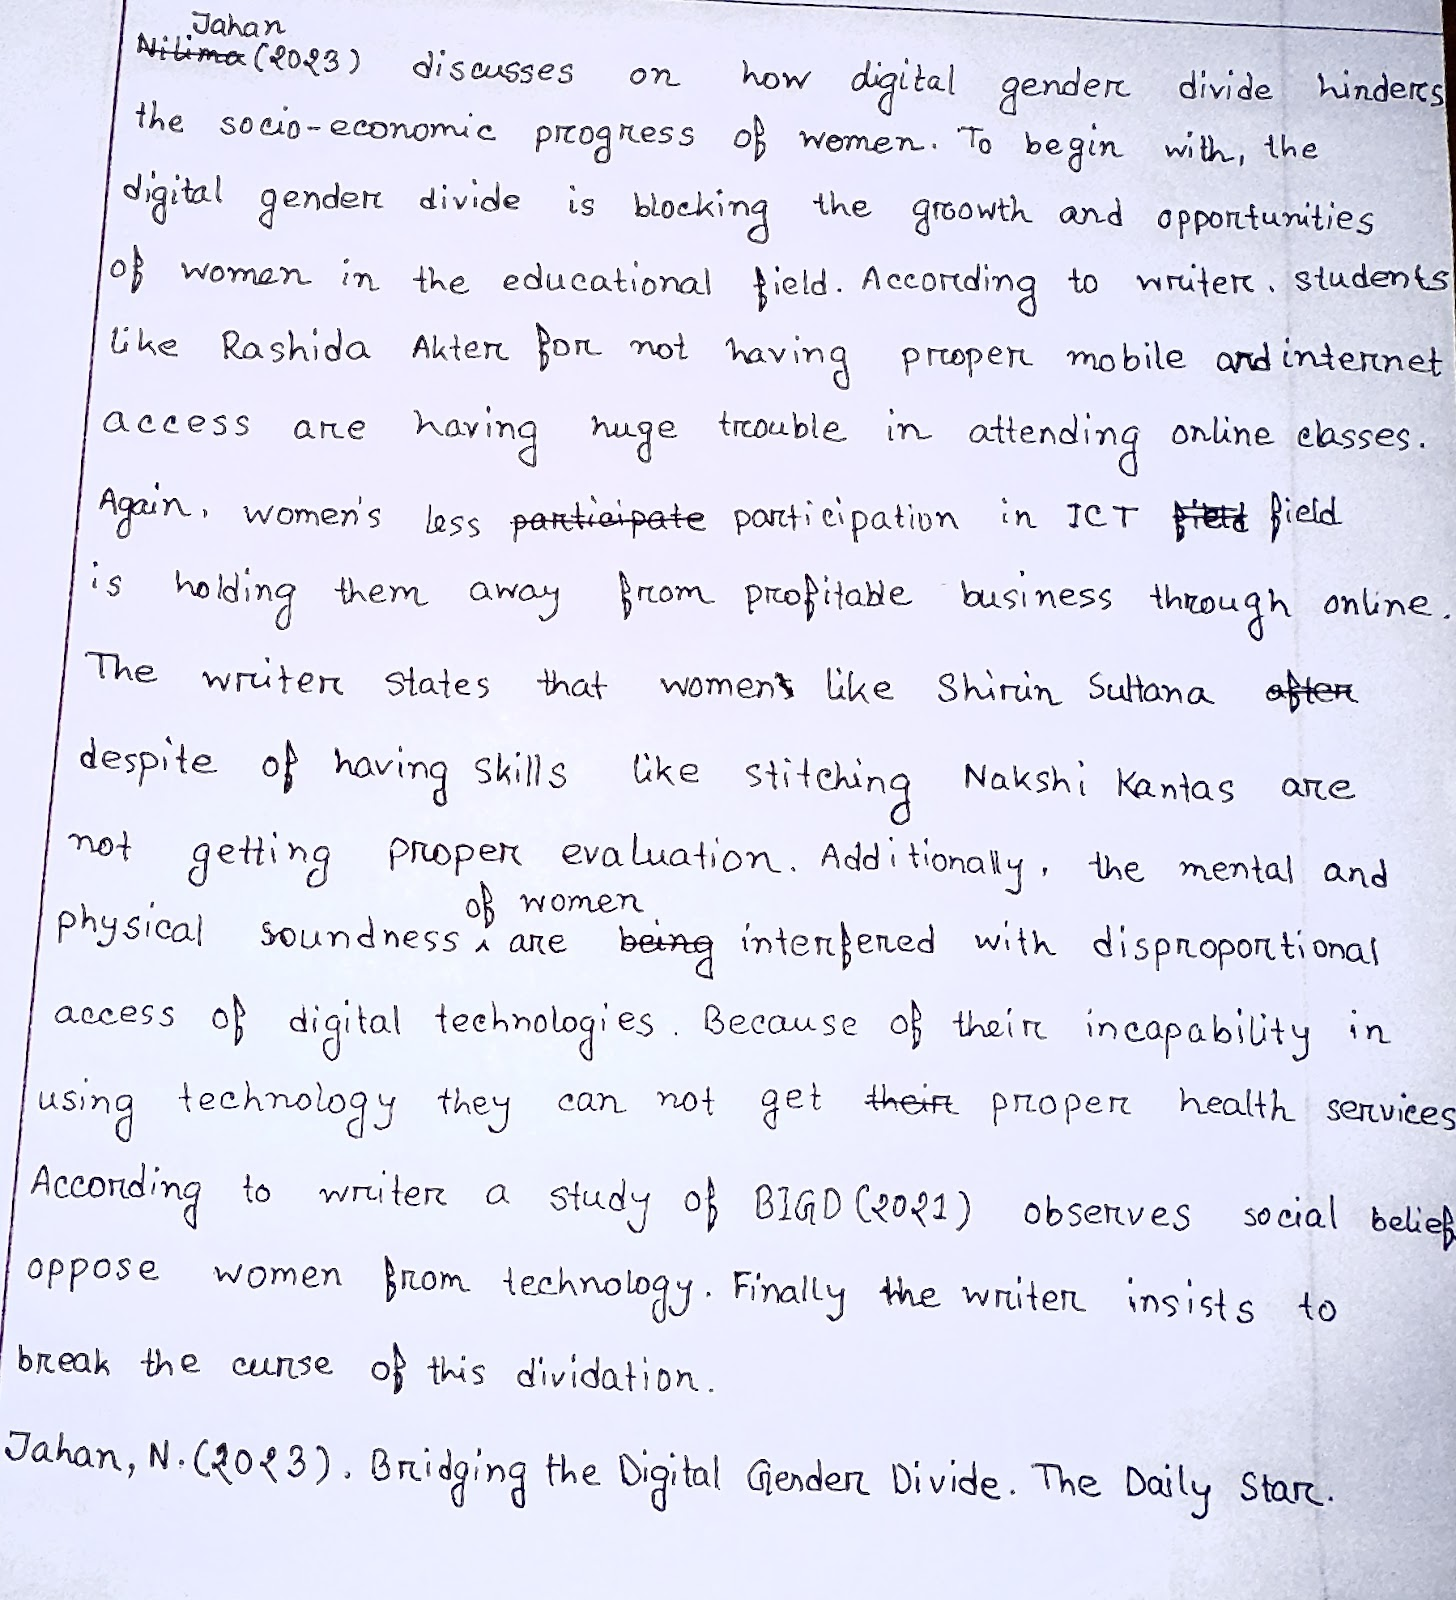 Jahan
Nilima (2023) discusses on how digital gender divide hinders
the socio-economic progress of women. To begin with, the
digital gender divide is blocking the growth and opportunities
of women in the educational field. According to writer, students
like Rashida Akter for not having proper mobile and internet
access are having huge trouble in attending online classes.
Again, women's less participate participation in ICT field field
is holding them away from profitable business through online.
The writer states that women like Shirin Sultana after
despite of having skills like stitching Nakshi Kantas are
not getting proper evaluation. Additionally, the mental and
of women
physical soundness ^ are being interfered with disproportional
access of digital technologies. Because of their incapability in
using technology they can not get their proper health services
According to writer a study of BIGD (2021) observes social belief
oppose women from technology. Finally the writer insists to
break the curse of this dividation.
Jahan, N. (2023). Bridging the Digital Gender Divide. The Daily Star.